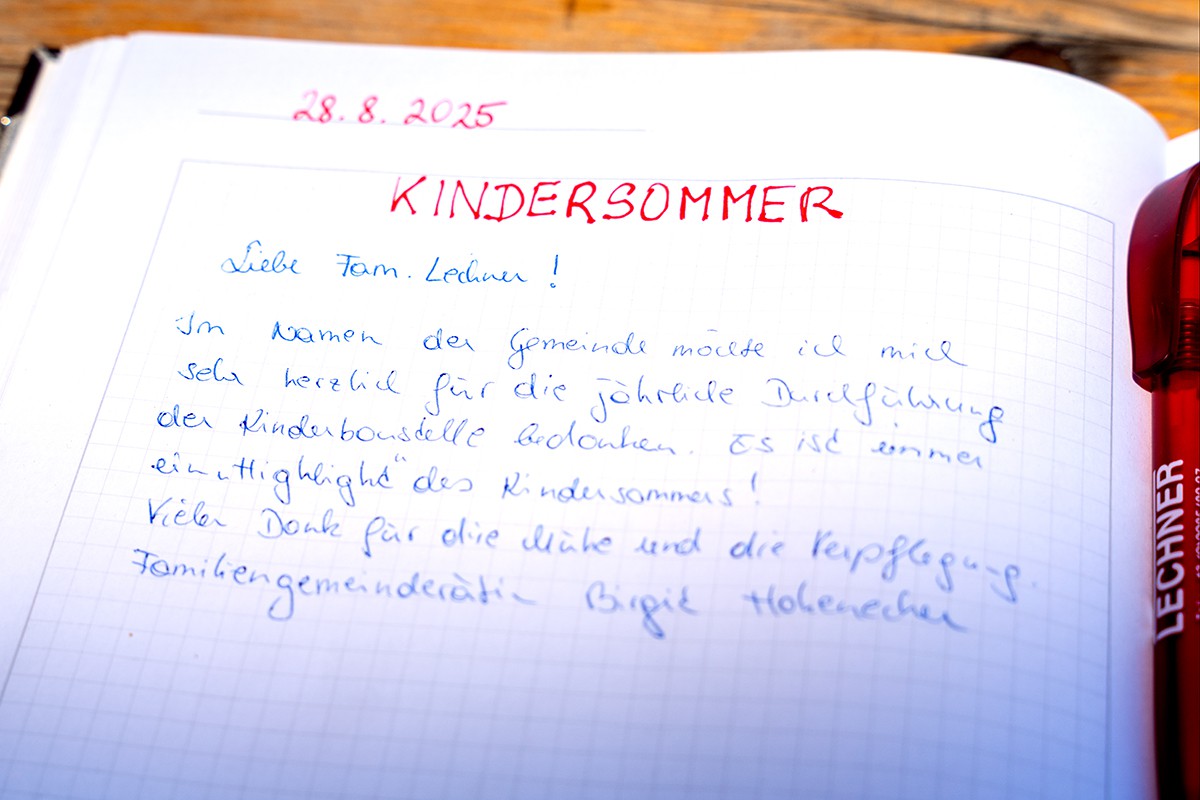 28.8.2025
KINDERSOMMER
Liebe Fam. Lechner!
Im Namen der Gemeinde möchte ich mich
sehr herzlich für die jährliche Durchführung
der Kinderbaustelle bedanken. Es ist immer
ein „Highlight“ des Kindersommers!
Vielen Dank für die Mühe und die Verpflegung.
Familiengemeinderätin Birgit Hohenecker
LECHNER